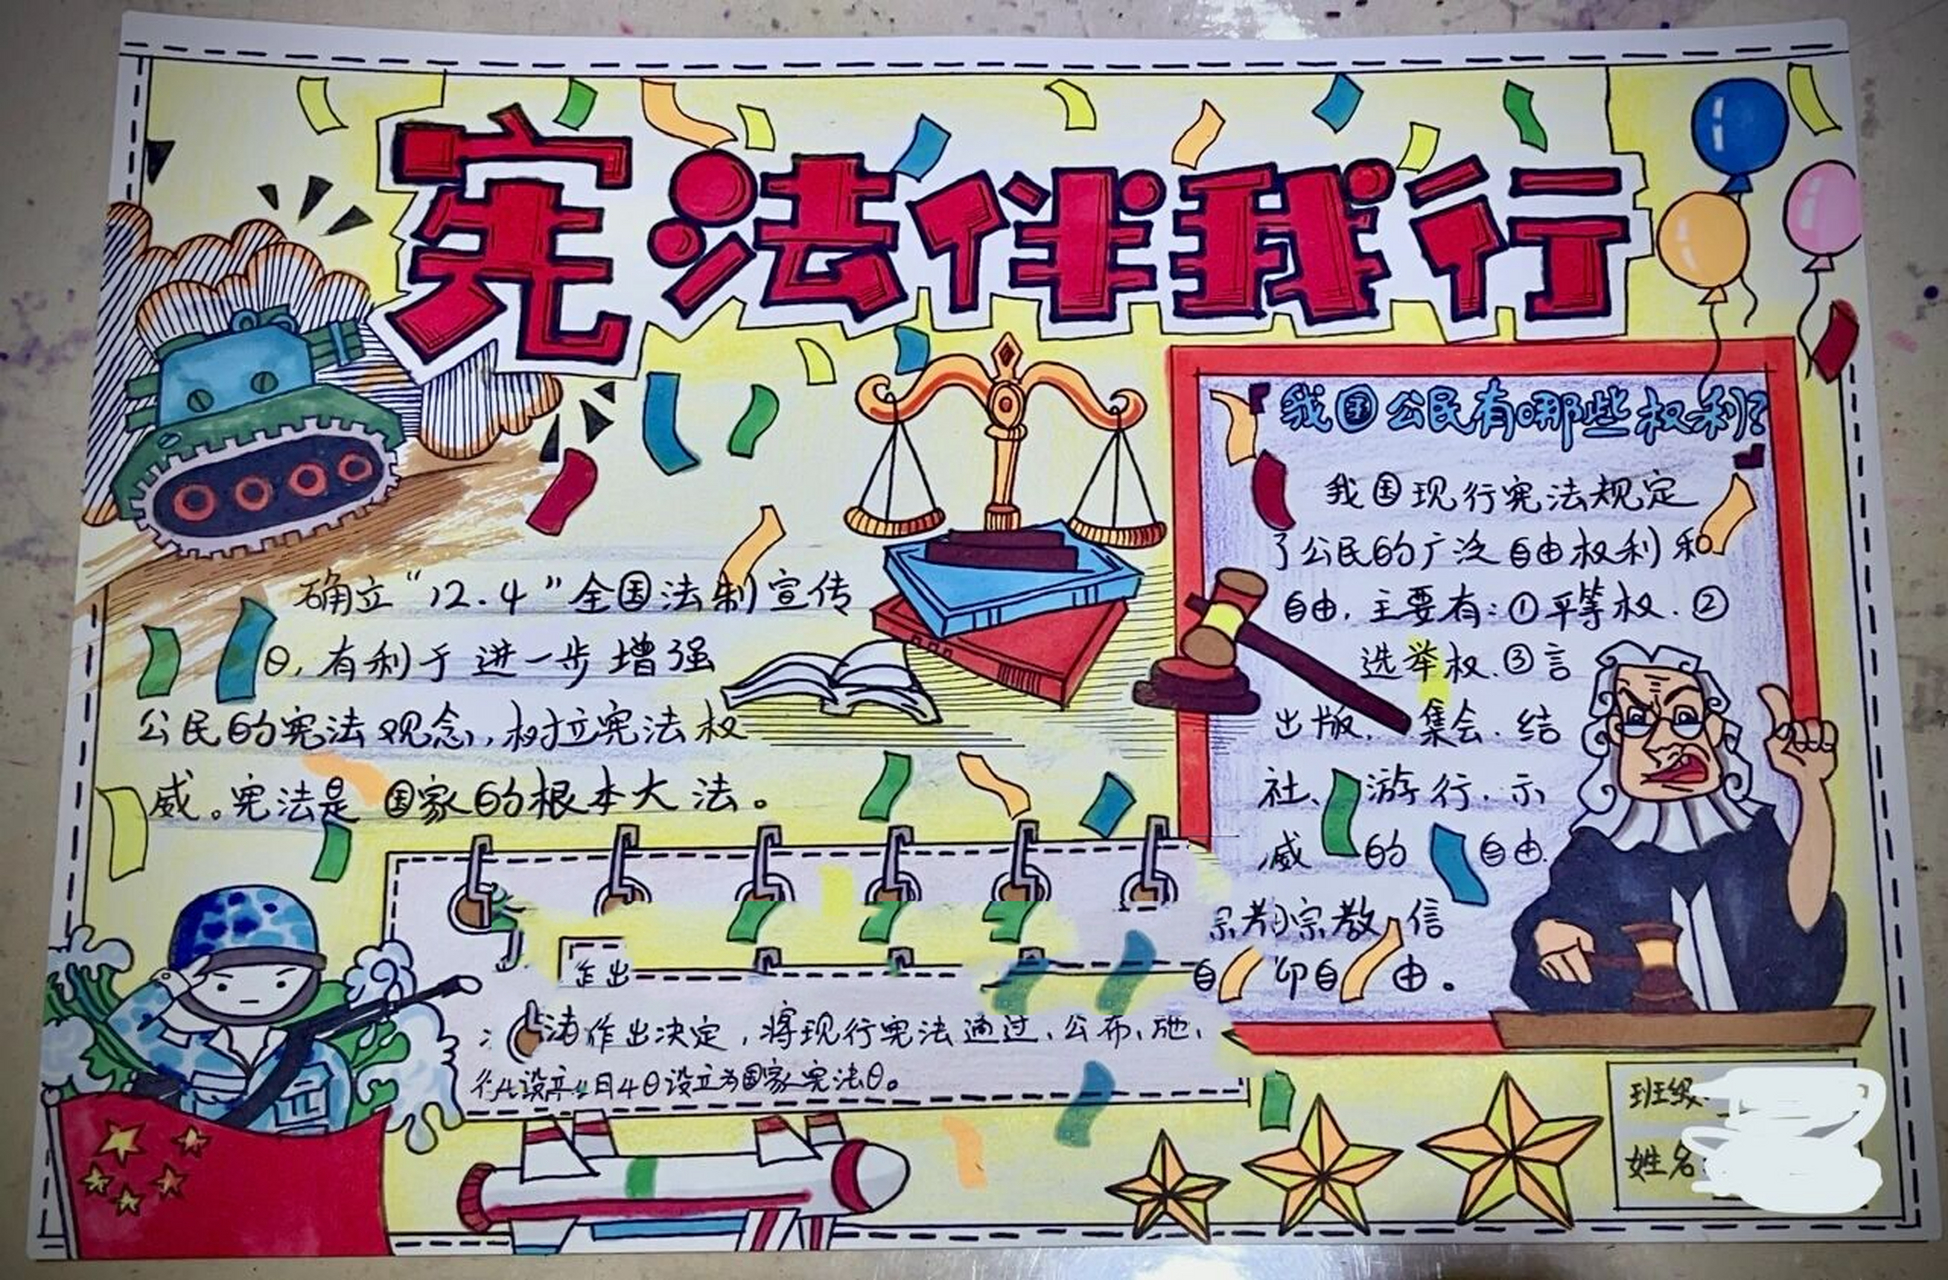 宪法伴我行
确立“12.4”全国法制宣传
日,有利于进一步增强
公民的宪法观念,树立宪法权
威。宪法是国家的根本大法。
我国公民有哪些权利?
我国现行宪法规定
了公民的广泛自由权利和
自由,主要有:①平等权.②
选举权.③言
出版, 集会.结
社、游行.示
威的自由.
宗教信
自由。
作出
法作出决定,将现行宪法通过、公布、
设立 月4日设立为国家宪法日。
班级
姓名